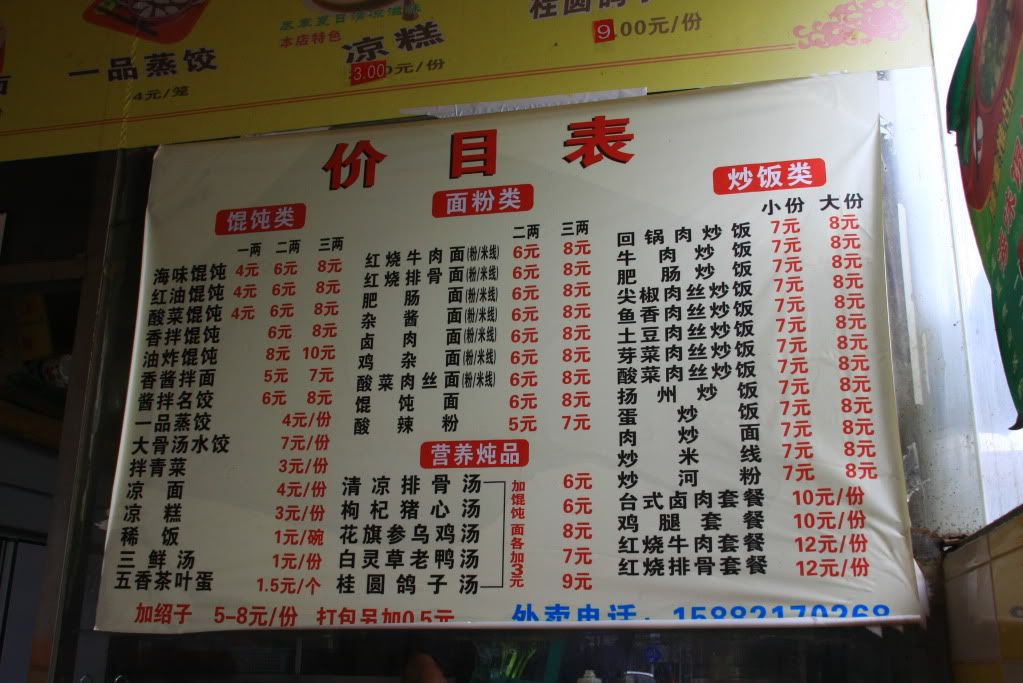 本店特色
一品蒸饺
4元/笼
凉糕
3.00元/份
9.00元/份
价目表
馄饨类
一两 二两 三两
海味馄饨 4元 6元 8元
红油馄饨 4元 6元 8元
酸菜馄饨 4元 6元 8元
香拌馄饨 6元 8元
油炸馄饨 8元 10元
香酱拌面 5元 7元
酱拌名饺 6元 8元
一品蒸饺 4元/份
大骨汤水饺 7元/份
拌青菜 3元/份
凉面 4元/份
凉糕 3元/份
稀饭 1元/碗
三鲜汤 1元/份
五香茶叶蛋 1.5元/个
面粉类
二两 三两
红烧牛肉面(粉/米线) 6元 8元
红烧排骨面(粉/米线) 6元 8元
肥肠面(粉/米线) 6元 8元
杂酱面(粉/米线) 6元 8元
卤肉面(粉/米线) 6元 8元
鸡杂面(粉/米线) 6元 8元
酸菜肉丝面(粉/米线) 6元 8元
馄饨面 6元 8元
酸辣粉 5元 7元
营养炖品
清凉排骨汤 6元
枸杞猪心汤 6元
花旗参乌鸡汤 8元
白灵草老鸭汤 7元
桂圆鸽子汤 9元
加馄饨面各加3元
炒饭类
小份 大份
回锅肉炒饭 7元 8元
牛肉炒饭 7元 8元
肥肠炒饭 7元 8元
尖椒肉丝炒饭 7元 8元
鱼香肉丝炒饭 7元 8元
土豆肉丝炒饭 7元 8元
芽菜肉丝炒饭 7元 8元
酸菜肉丝炒饭 7元 8元
扬州炒饭 7元 8元
蛋炒饭 7元 8元
肉炒面 7元 8元
炒米线 7元 8元
炒河粉 7元 8元
台式卤肉套餐 10元/份
鸡腿套餐 10元/份
红烧牛肉套餐 12元/份
红烧排骨套餐 12元/份
加绍子 5-8元/份 打包另加0.5元
外卖电话：15882170268